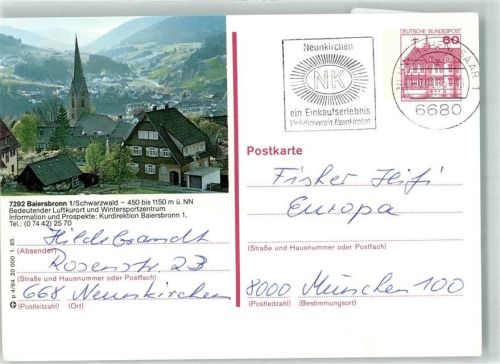 Neunkirchen
NK
ein Einkaufserlebnis
Verkehrsverein Neunkirchen
DEUTSCHE BUNDESPOST
60
6680
7292 Baiersbronn 1/Schwarzwald – 450 bis 1150 m ü. NN
Bedeutender Luftkurort und Wintersportzentrum
Information und Prospekte: Kurdirektion Baiersbronn 1,
Tel.: (0 74 42) 25 70
Postkarte
Fisher Hifi
Europa
Hildebrandt
(Absender)
Rosenstr 23
(Straße und Hausnummer oder Postfach)
668 Neunkirchen
(Postleitzahl) (Ort)
(Straße und Hausnummer oder Postfach)
8000 München 100
(Postleitzahl) (Bestimmungsort)
p 4/64 20 000 1.85